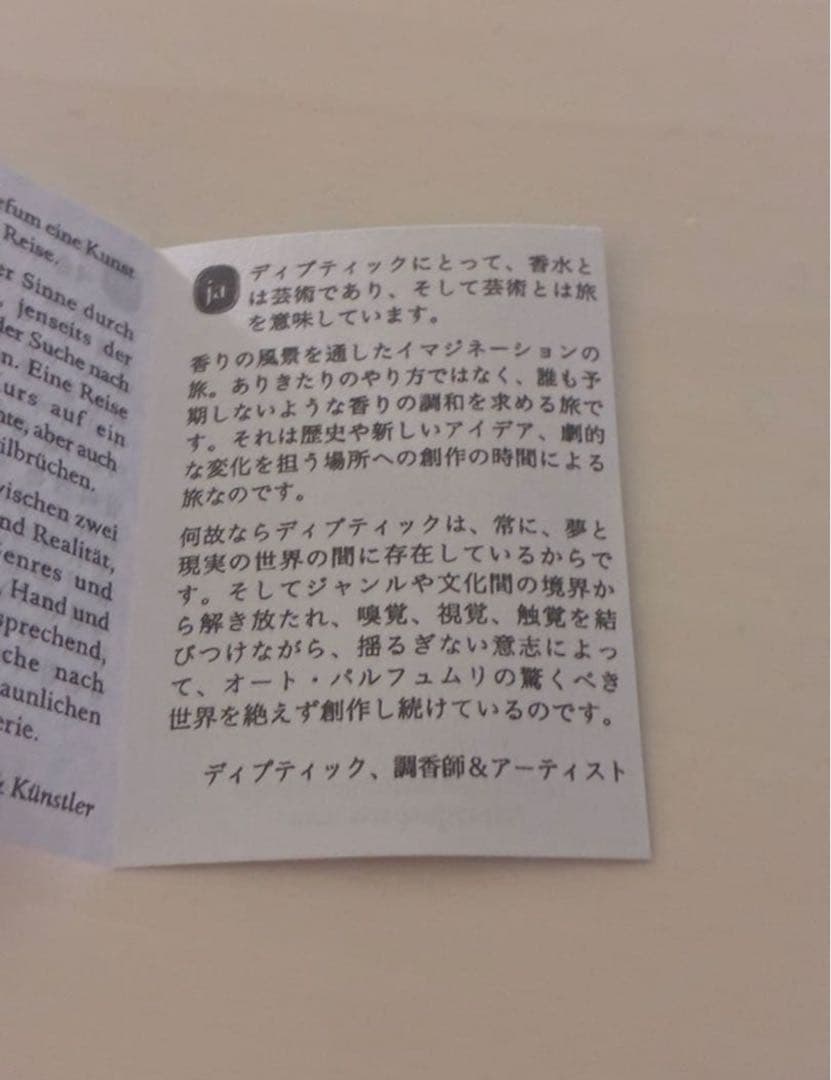 efum eine Kunst
Reise.
er Sinne durch
jenseits der
der Suche nach
n. Eine Reise
urs auf ein
nte, aber auch
ilbrüchen.
wischen zwei
nd Realität,
enres und
Hand und
sprechend,
che nach
aunlichen
erie.
& Künstler
ja
ディプティックにとって、香水と
は芸術であり、そして芸術とは旅
を意味しています。
香りの風景を通したイマジネーションの
旅。ありきたりのやり方ではなく、誰も予
期しないような香りの調和を求める旅で
す。それは歴史や新しいアイデア、劇的
な変化を担う場所への創作の時間による
旅なのです。
何故ならディプティックは、常に、夢と
現実の世界の間に存在しているからで
す。そしてジャンルや文化間の境界か
ら解き放たれ、嗅覚、視覚、触覚を結
びつけながら、揺るぎない意志によっ
て、オート・パルフュムリの驚くべき
世界を絶えず創作し続けているのです。
ディプティック、調香師＆アーティスト